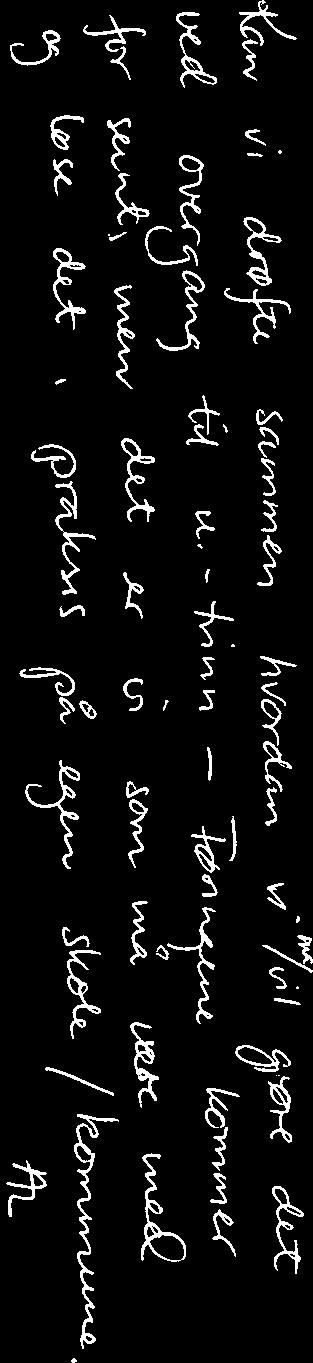 Kan vi drøfte sammen hvordan vi må/vil gjøre det
ved overgang til u.-trinn - Føringene kommer
for seint, men det er vi som må være med
og løse det i praksis på egen skole / kommune.